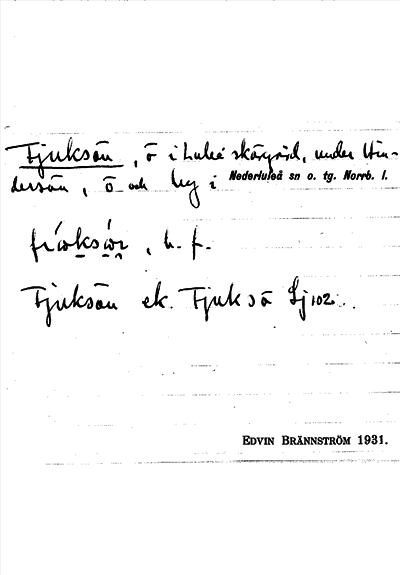 Fjuksön, ö i Luleå skärgård, under Hin-
dersön, ö och hg i Nederluleå sn o. tg. Norrb. l.
b. f.
Fjuksön ek. Fjuksö Lj 102.
EDVIN BRÄNNSTRÖM 1931.